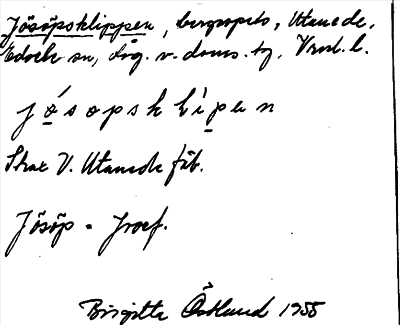 Jösöpsklippen, bergsspets, Utanede,
Edsele sn, Ång. v. doms. tg, Vnrl. l.
jó̱sopsklìpen
Strax V. Utanede fäb.
Jösöp = Josef.
Birgitta Östlund 1955